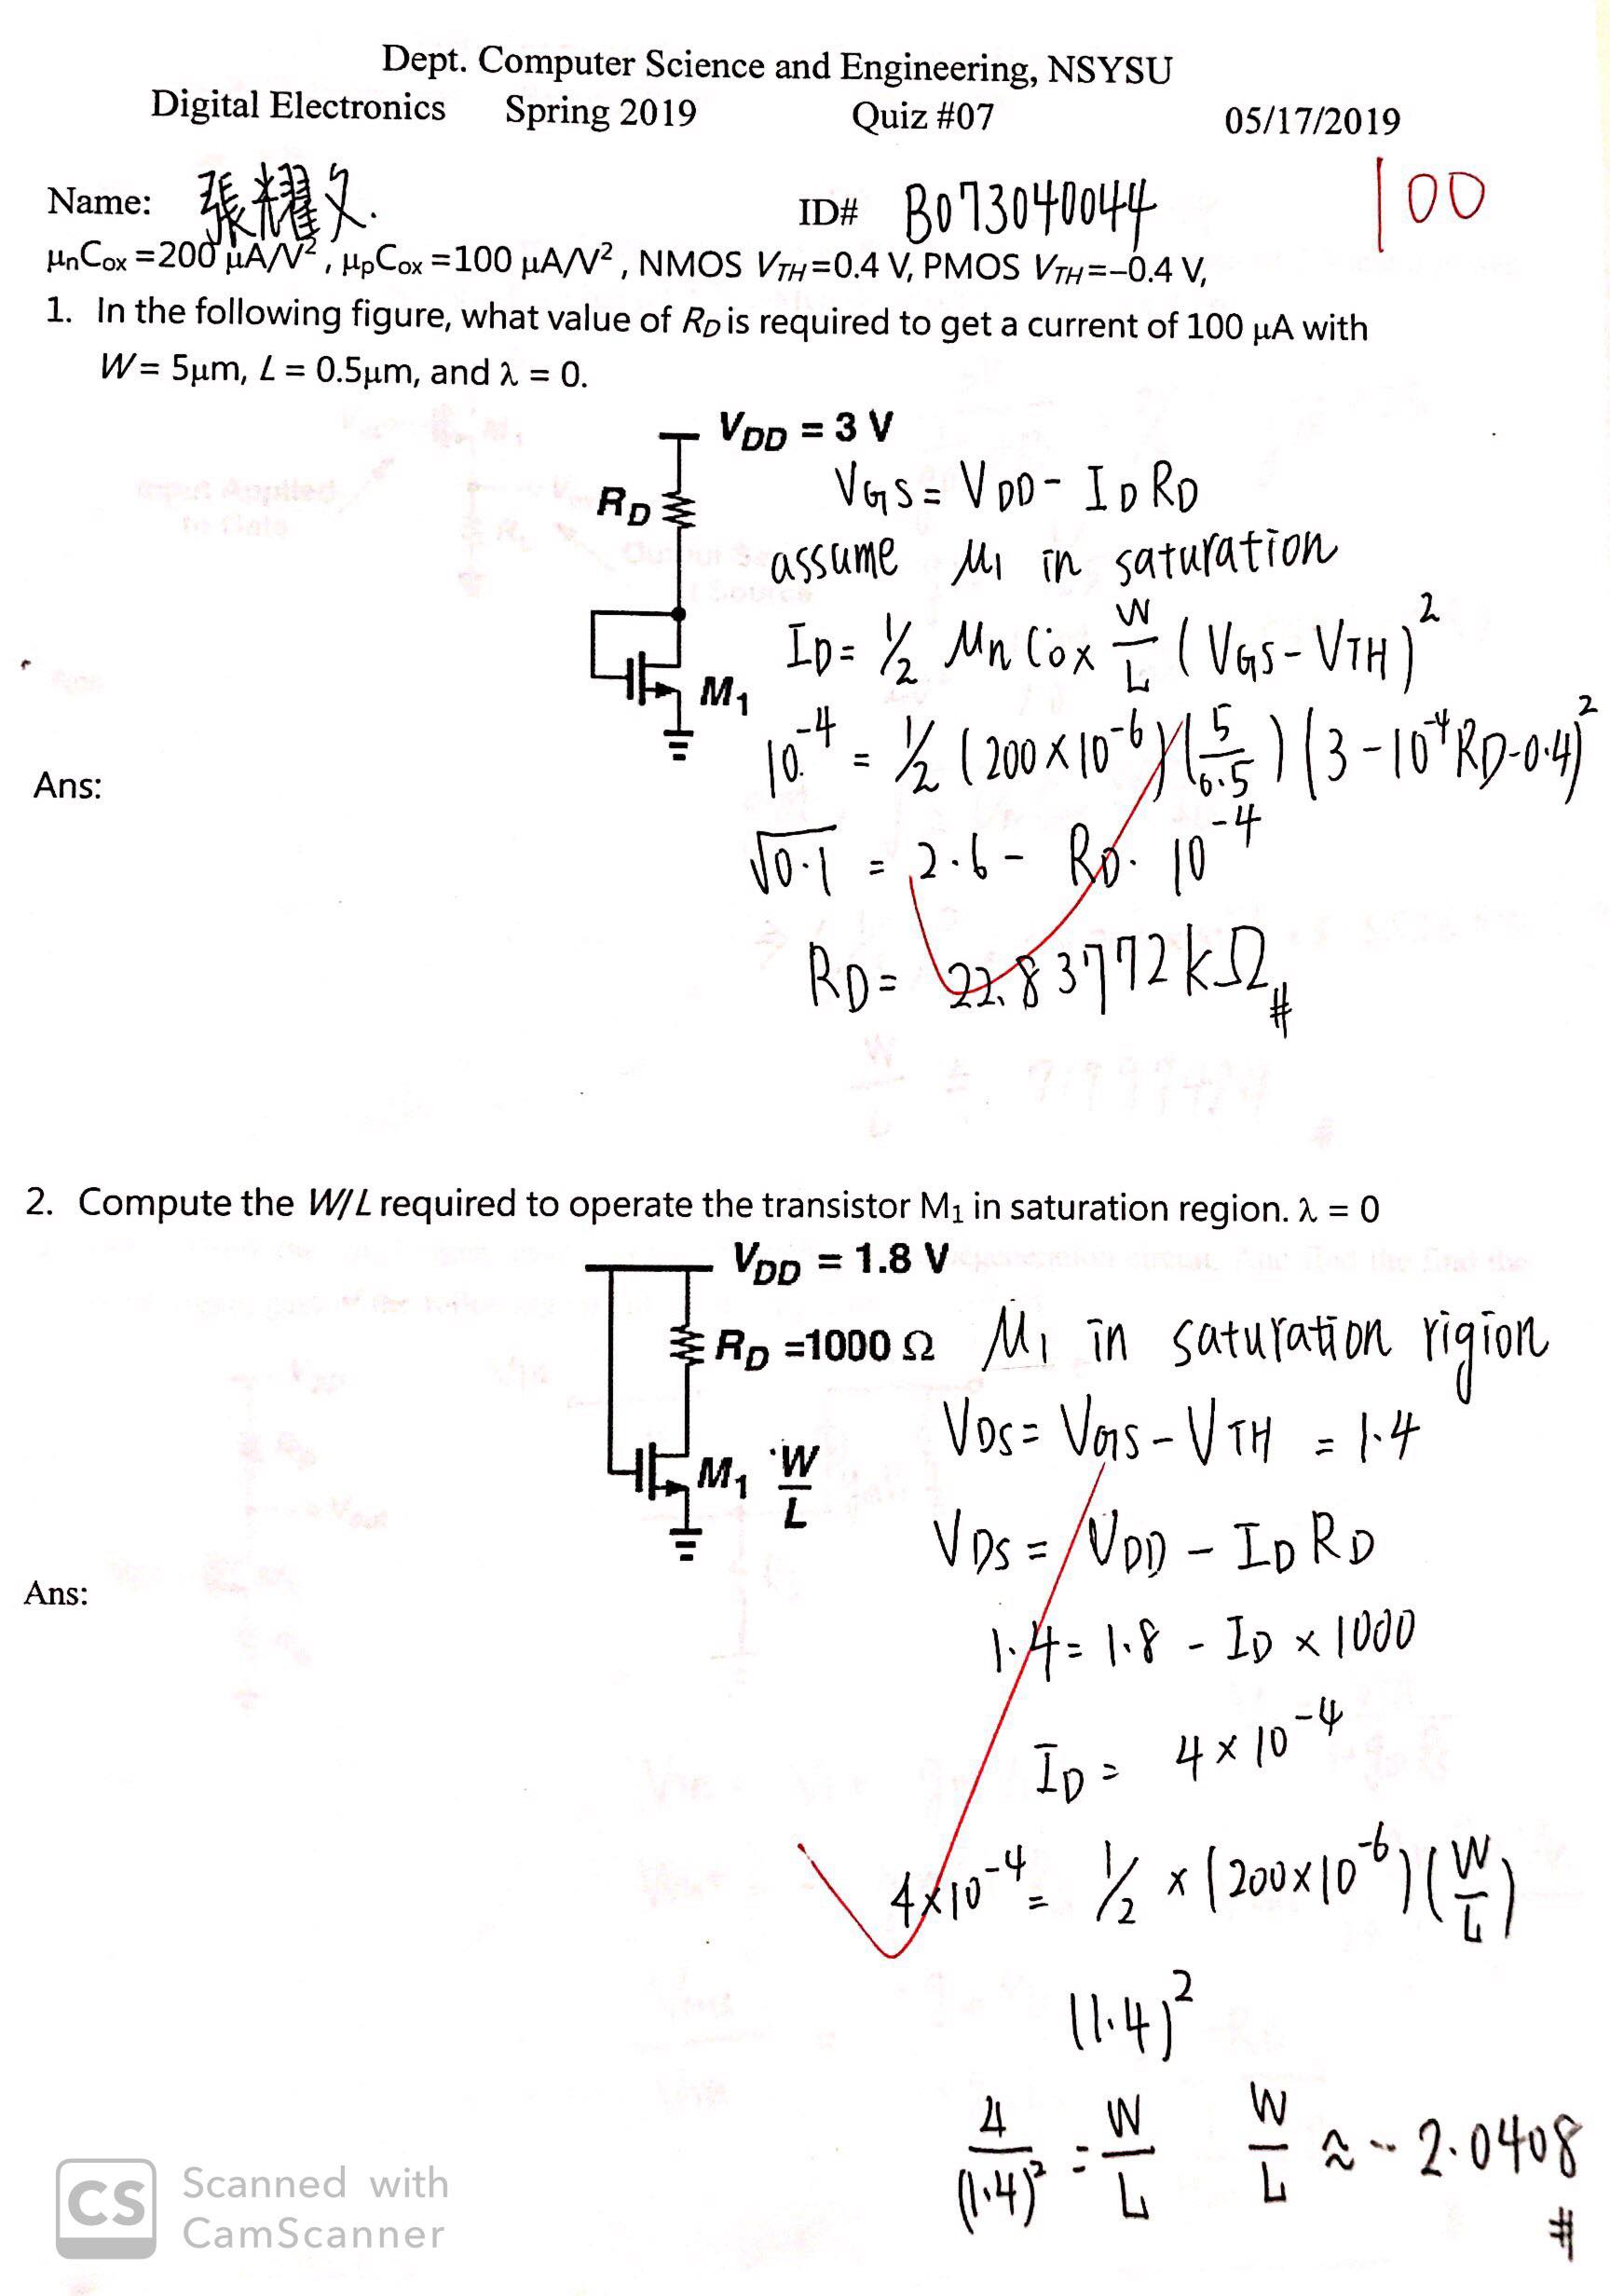 Dept. Computer Science and Engineering, NSYSU
Digital Electronics Spring 2019 Quiz #07 05/17/2019
Name: 張耀文. ID# B073040044 100
μnCox =200 μA/V², μpCox =100 μA/V², NMOS VTH=0.4 V, PMOS VTH=−0.4 V,
1. In the following figure, what value of RD is required to get a current of 100 μA with
W= 5μm, L = 0.5μm, and λ = 0.
VDD = 3 V
RD
VGS = VDD - ID RD
assume M1 in saturation
ID = 1/2 μn Cox W/L (VGS - VTH)²
M1
10⁻⁴ = 1/2 (200×10⁻⁶)(5/0.5)(3-10⁻⁴RD-0.4)²
Ans:
√0.1 = 2.6 - RD. 10⁻⁴
RD = 22.83772 kΩ #
2. Compute the W/L required to operate the transistor M1 in saturation region. λ = 0
VDD = 1.8 V
RD =1000 Ω M1 in saturation rigion
VDS = VGS - VTH = 1.4
M1 W/L
VDS = VDD - ID RD
Ans:
1.4 = 1.8 - ID × 1000
ID = 4×10⁻⁴
4×10⁻⁴ = 1/2 × (200×10⁻⁶)(W/L)
(1.4)²
4/(1.4)² = W/L W/L ≈ 2.0408
#
CS Scanned with
CamScanner